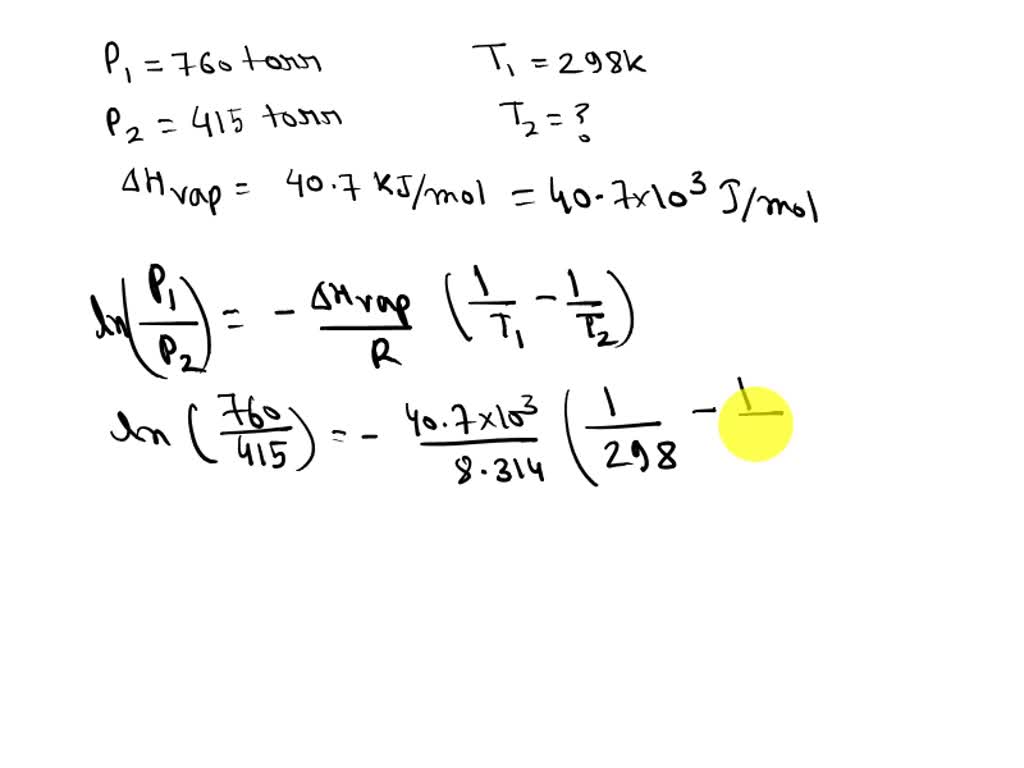 P₁ = 760 torr T₁ = 298k
P₂ = 415 torr T₂ = ?
ΔHvap = 40.7 KJ/mol = 40.7×10³ J/mol
ln(P₁/P₂) = - ΔHvap/R (1/T₁ - 1/T₂)
ln(760/415) = - 40.7×10³/8.314 (1/298 - 1/